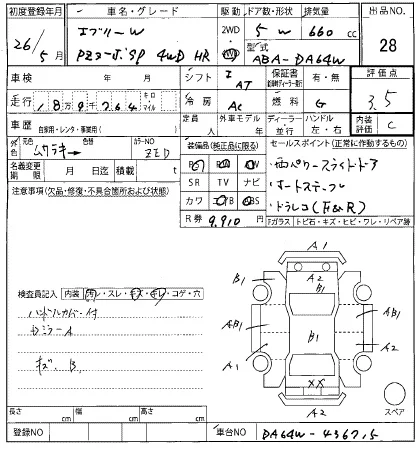 初度登録年月 車名・グレード 駆動 ドア数・形状 排気量 出品NO.
26/5月 エブリーW 2WD 4WD 5W 660cc 28
PZターボSP 4WD HR 型式 ABA-DA64W
車検 年 月 シフト I AT 保証書 有・無 評価点
走行 18万9千764 キロ マイル 冷房 AC 燃料 G 3.5
車歴 自家用・レンタ・事業用( ) 定員 人 外車モデル 年 ディーラー 並行 ハンドル 左・右 内装評価 C
外色 元色 ムラサキ 色替 カラーNO ZED 装備品(純正品に限る) セールスポイント(正常に作動するもの)
名義変更期限 月 日迄 積載 t
注意事項(欠品・修復・不具合箇所および状態)
SR TV ナビ
・両パワースライドドア
・オートステップ
・ドラレコ(F&R)
カワ
R券 9,910円
Fガラス トビ石・キズ・ヒビ・ワレ・リペア跡
検査員記入 内装 汚レ・スレ・キズ・キレ・コゲ・穴
ハンドルカバー付
キズ B
A1
A2
B1
B1
A1
AB1
B1
AB1
A1
A2
XX
A2
スペア
長さ cm 幅 cm 高さ cm
登録NO 車台NO DA64W-436715